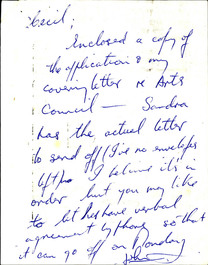 Cecil;
Enclosed a copy of
the application & my
covering letter re Arts
Council — Sandra
has the actual letter
to send off (I've no envelopes
left) I believe it's in
order but you may like
to let her have verbal
agreement by phone so that
it can go off on Monday